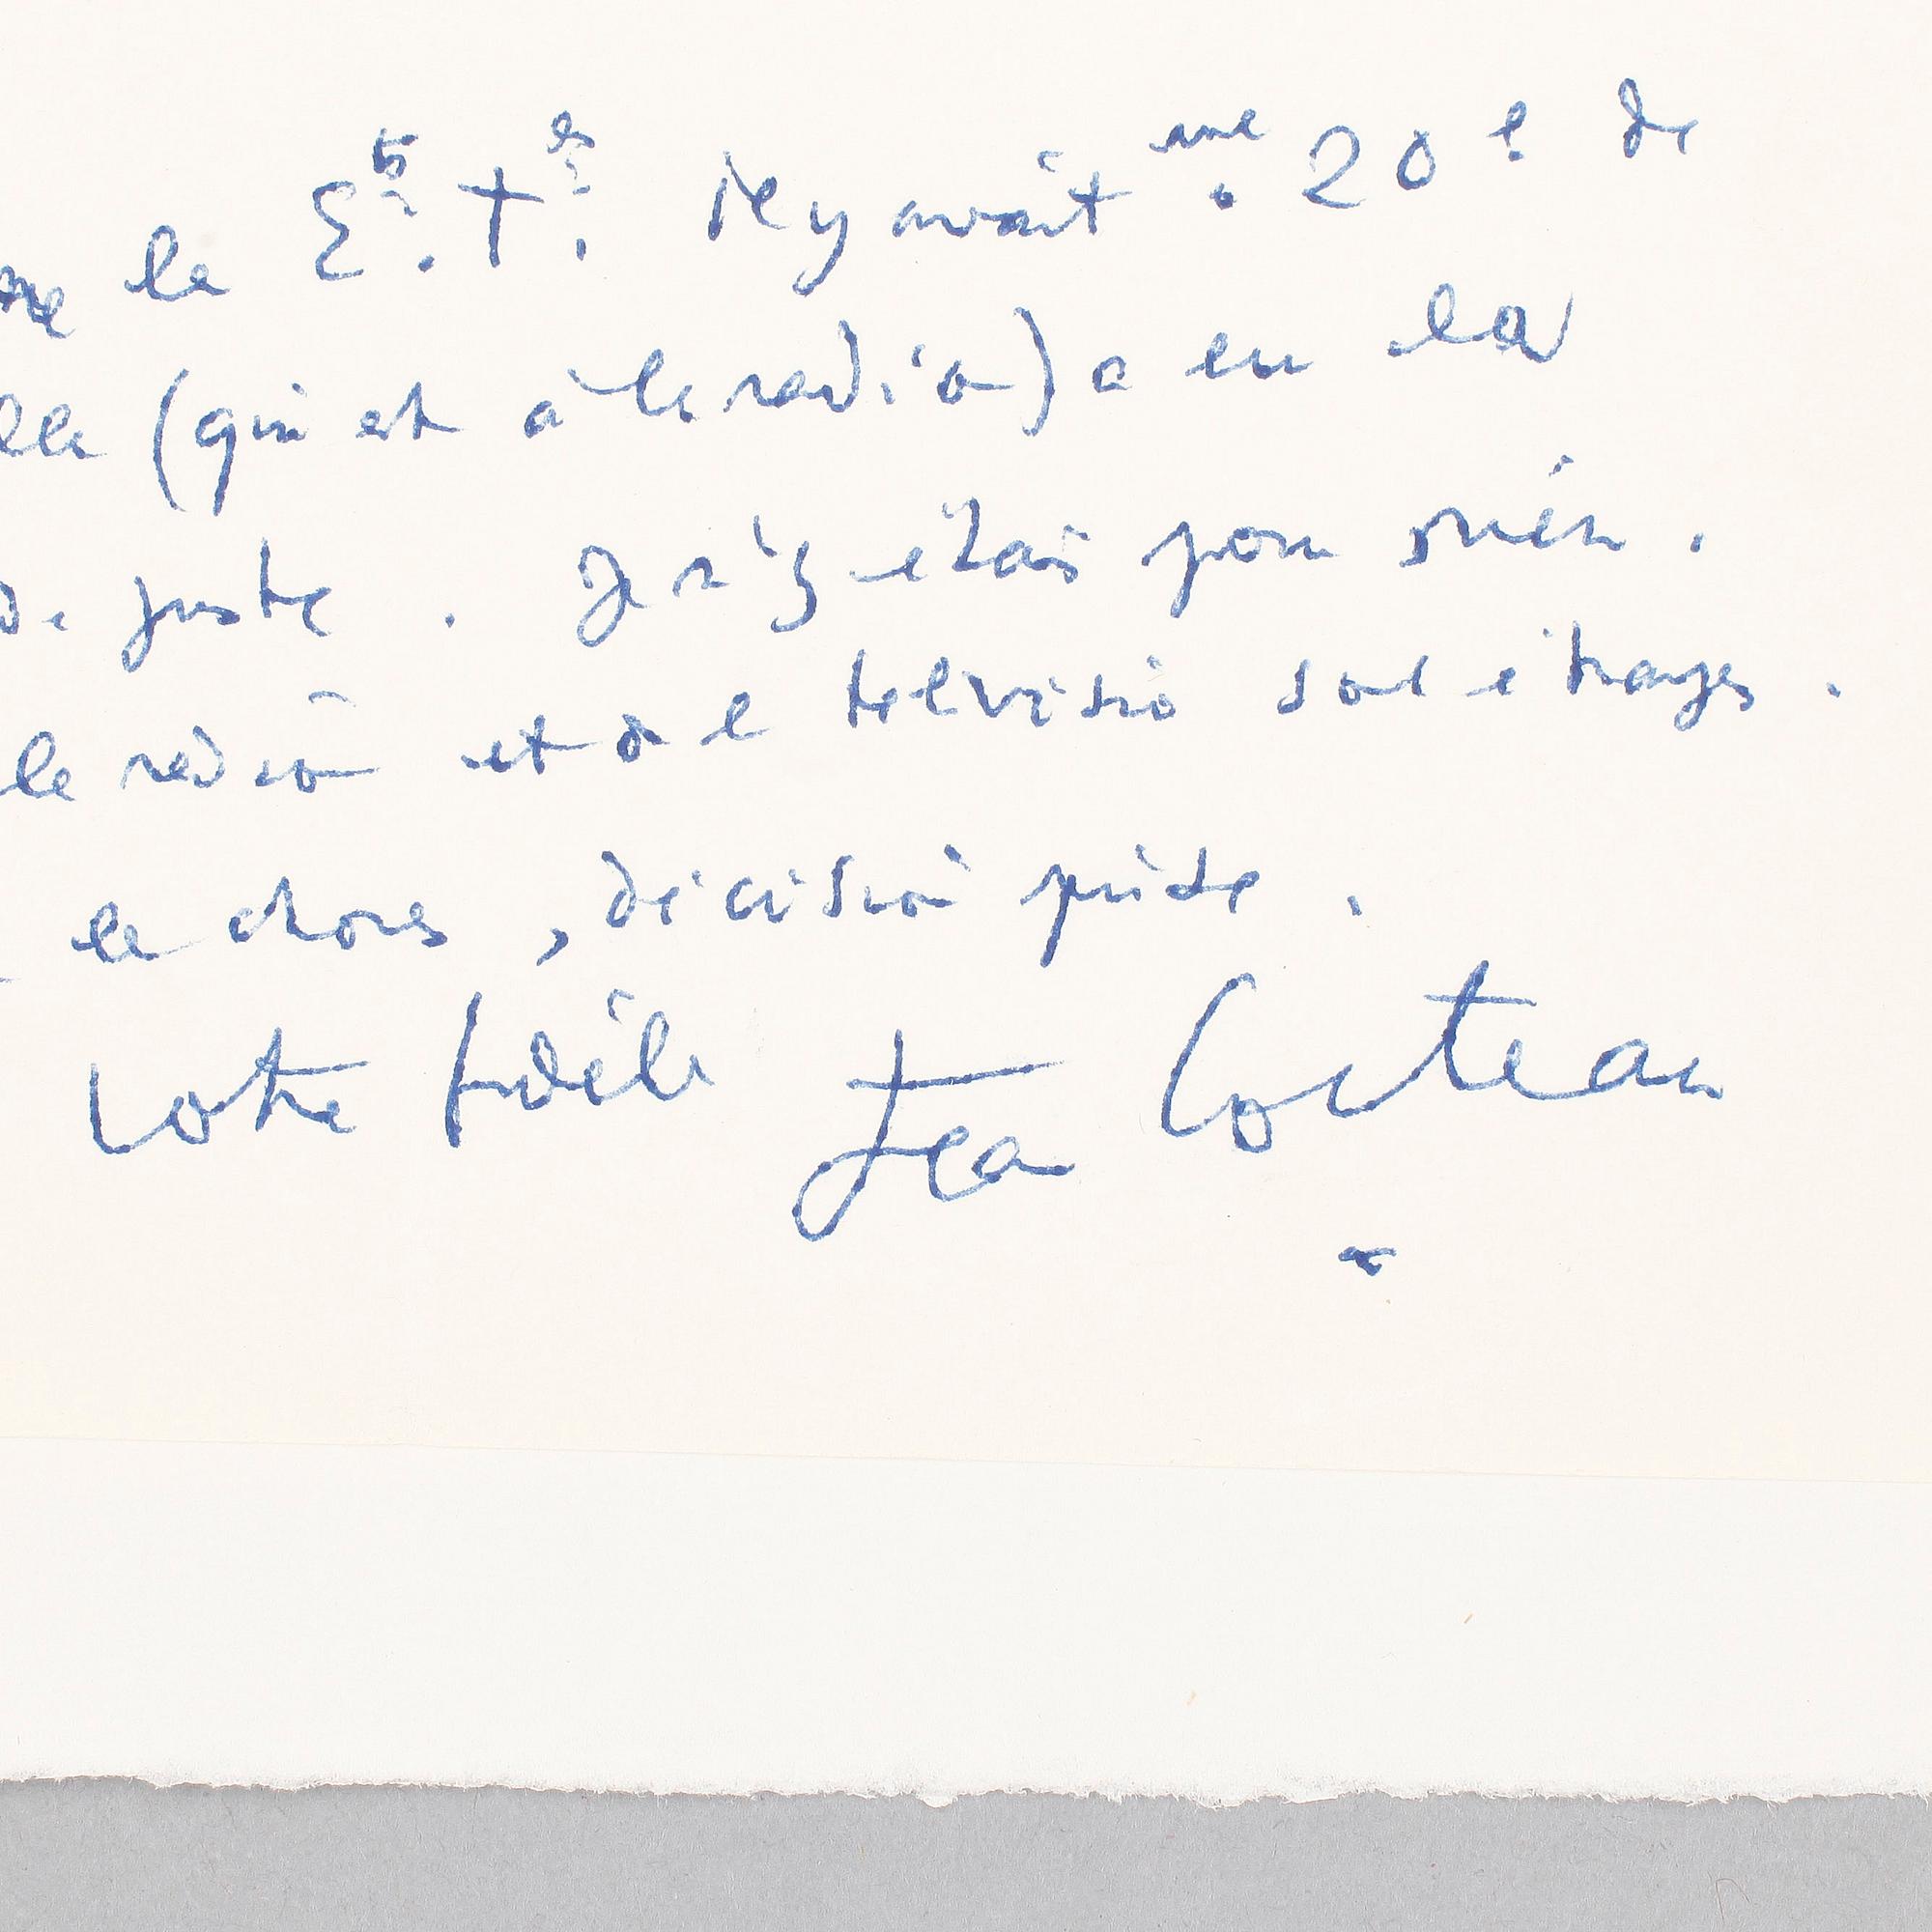 le Ets. Tes. Il y avait une 20e de
(qui est à la radio) a eu la
de juste. Je n'y étais pour rien.
la radio et de la télévision sont étranges.
les choses, décision prise.
Votre fidèle Jean Cocteau